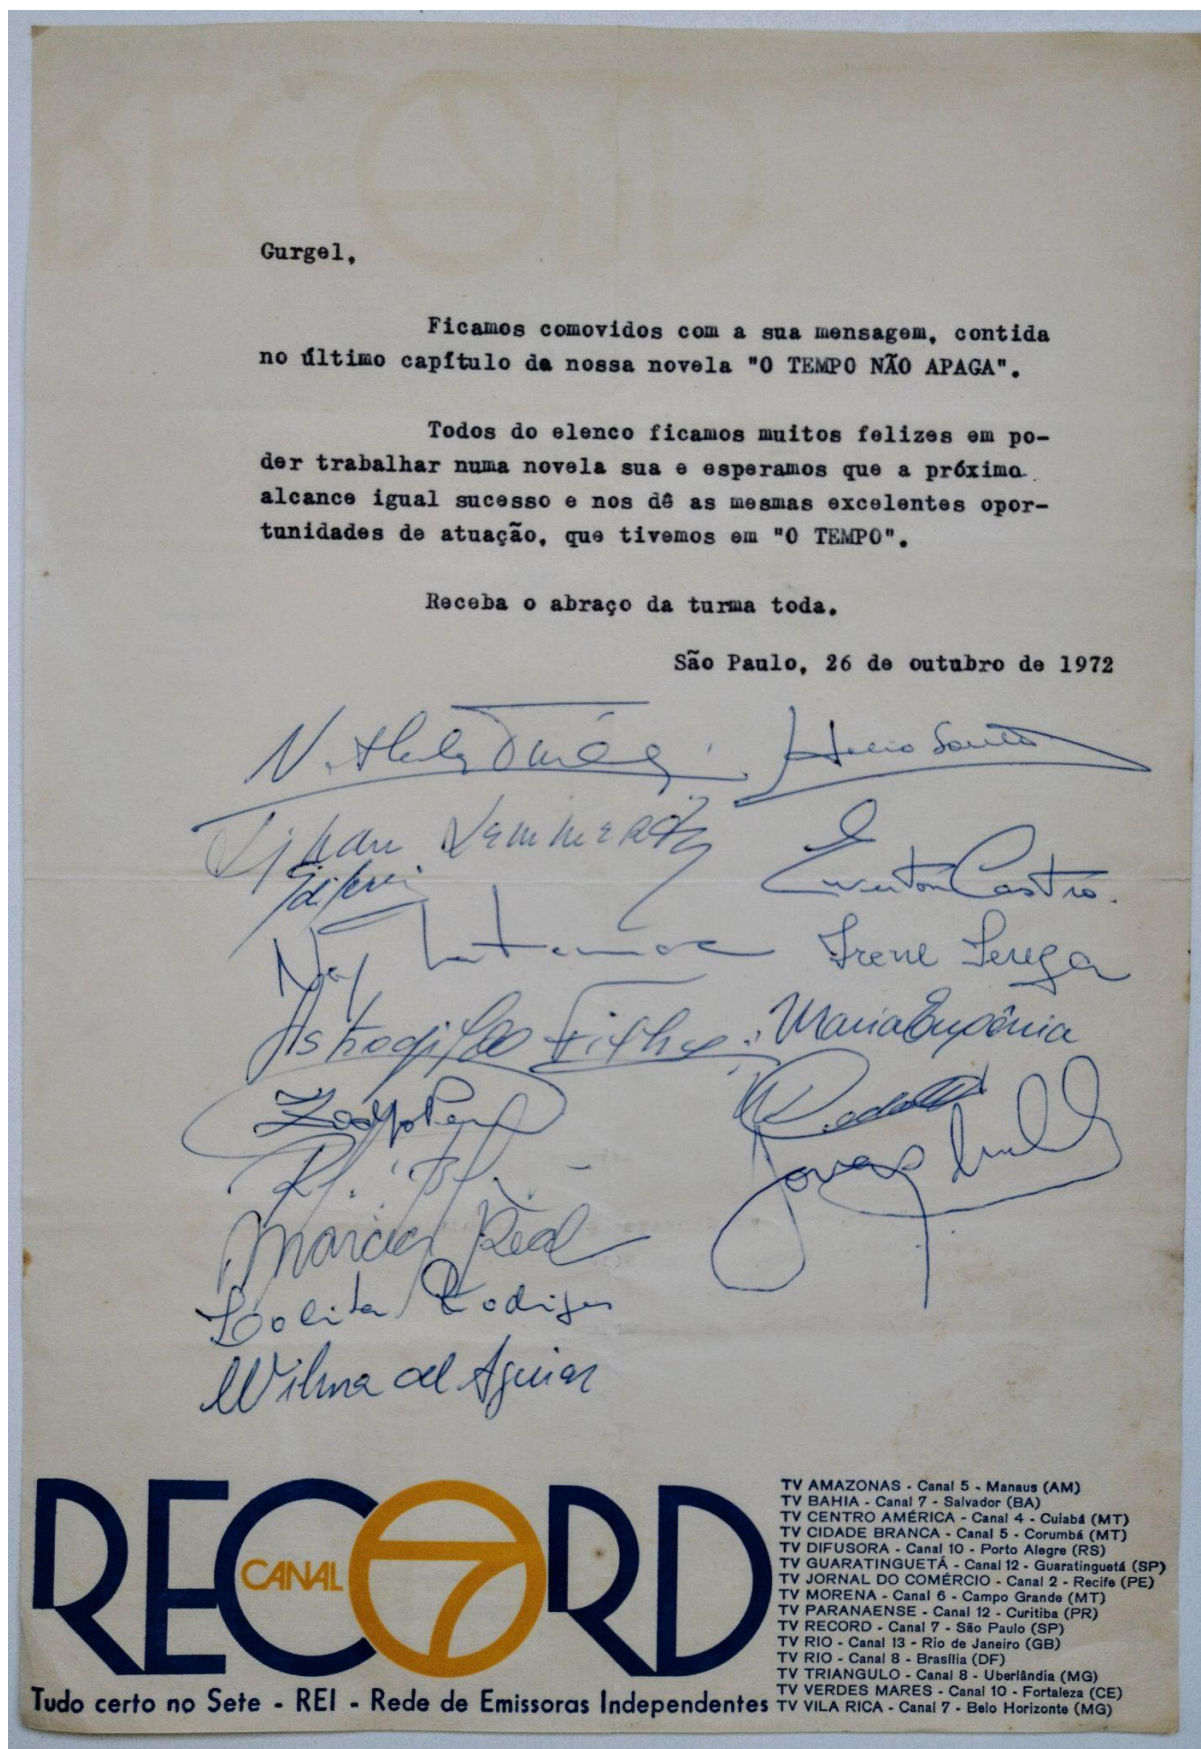 Gurgel,
Ficamos comovidos com a sua mensagem, contida
no último capítulo da nossa novela "O TEMPO NÃO APAGA".
Todos do elenco ficamos muitos felizes em po-
der trabalhar numa novela sua e esperamos que a próxima
alcance igual sucesso e nos dê as mesmas excelentes opor-
tunidades de atuação, que tivemos em "O TEMPO".
Receba o abraço da turma toda.
São Paulo, 26 de outubro de 1972
Nathalia Timberg
Hélio Souto
Lilian Lemmertz
Ewerton Castro.
Ney Latorraca
Irene
Astrogildo Filho
Maria Eugênia
Marcia Real
Lolita Rodrigues
Wilma de Aguiar
RECORD
CANAL 7
Tudo certo no Sete - REI - Rede de Emissoras Independentes
TV AMAZONAS - Canal 5 - Manaus (AM)
TV BAHIA - Canal 7 - Salvador (BA)
TV CENTRO AMÉRICA - Canal 4 - Cuiabá (MT)
TV CIDADE BRANCA - Canal 5 - Corumbá (MT)
TV DIFUSORA - Canal 10 - Porto Alegre (RS)
TV GUARATINGUETÁ - Canal 12 - Guaratinguetá (SP)
TV JORNAL DO COMÉRCIO - Canal 2 - Recife (PE)
TV MORENA - Canal 6 - Campo Grande (MT)
TV PARANAENSE - Canal 12 - Curitiba (PR)
TV RECORD - Canal 7 - São Paulo (SP)
TV RIO - Canal 13 - Rio de Janeiro (GB)
TV RIO - Canal 8 - Brasília (DF)
TV TRIANGULO - Canal 8 - Uberlândia (MG)
TV VERDES MARES - Canal 10 - Fortaleza (CE)
TV VILA RICA - Canal 7 - Belo Horizonte (MG)